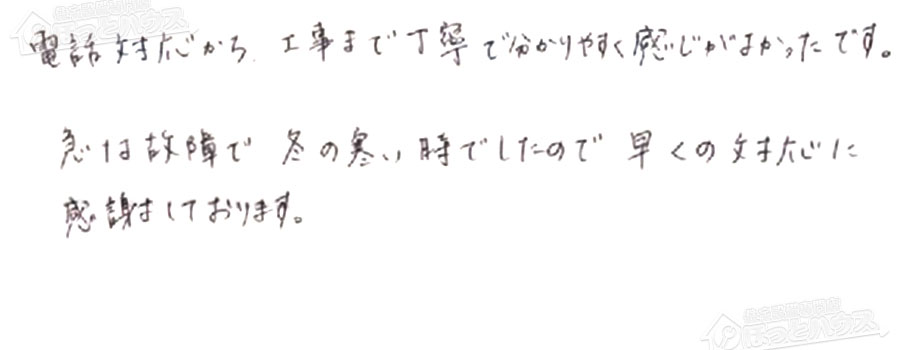 電話対応から、工事まで丁寧で分かりやすく感じがよかったです。
急な故障で 冬の寒い時でしたので 早くの対応に
感謝しております。
ほっとハウス
ほっとハウス